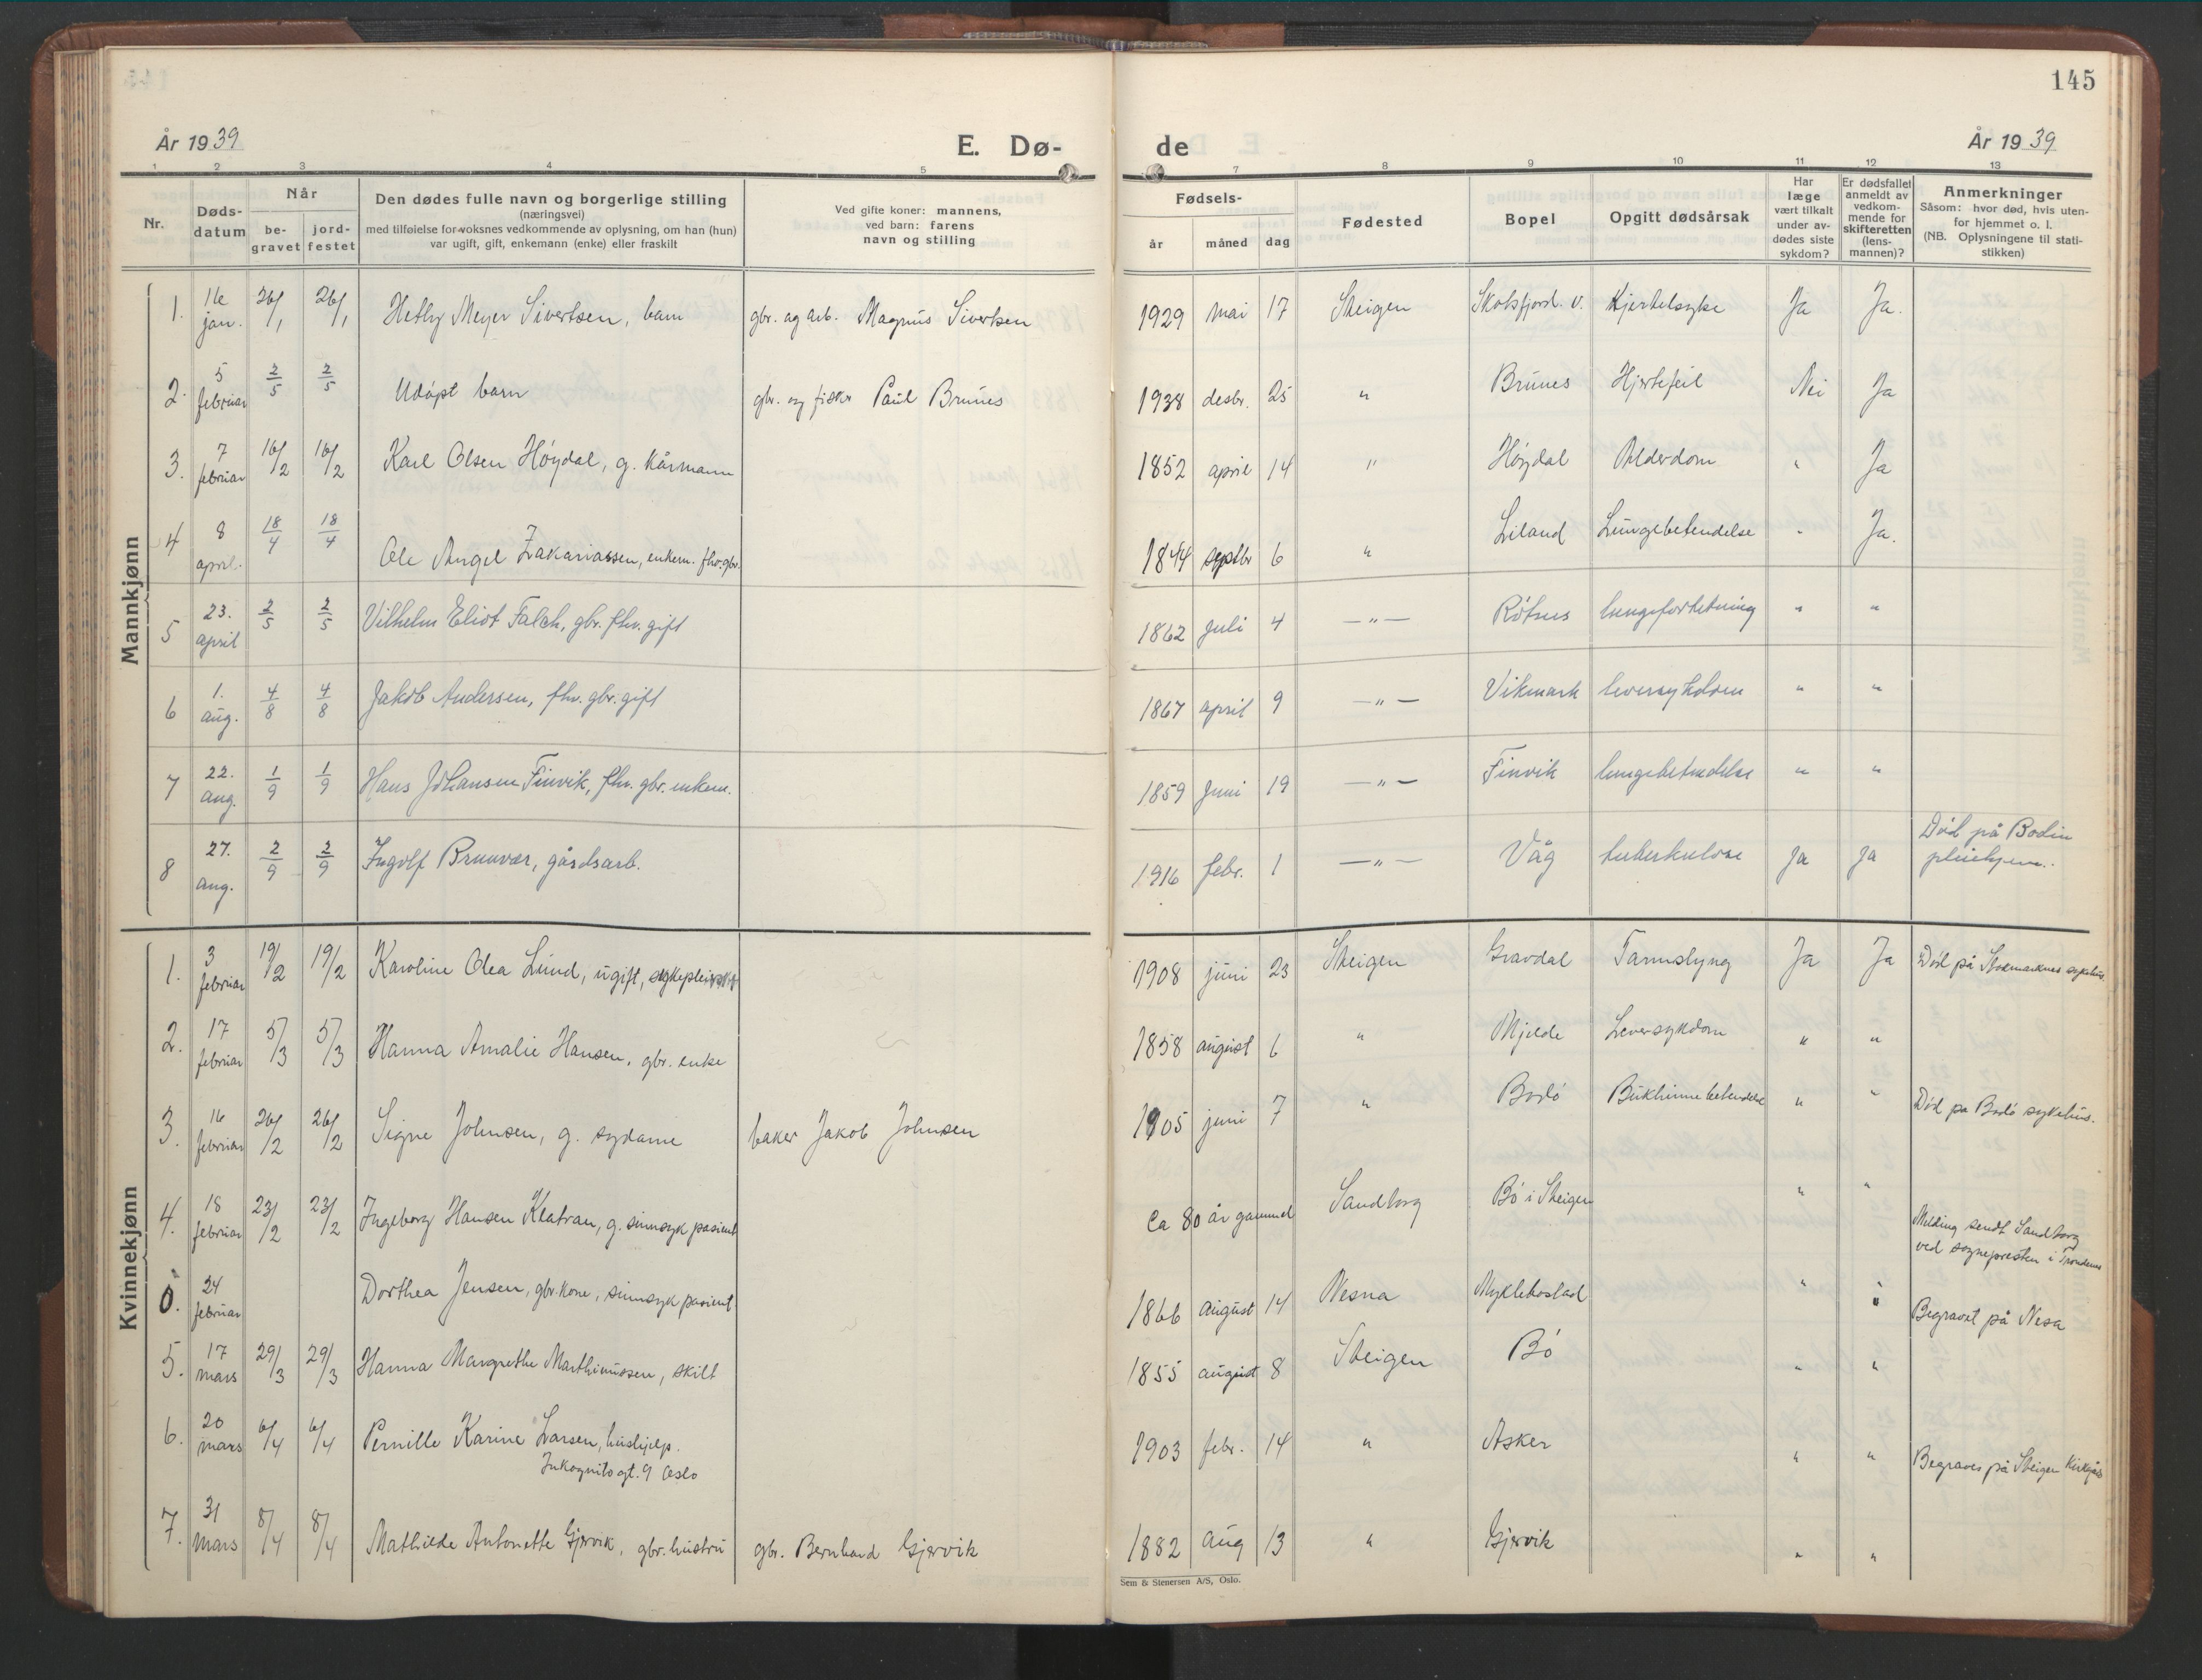 145
År 1939
E. Dø-
de
År 1939
1 2 3 4 5 7 8 9 10 11 12 13
Nr.
Døds-
datum
Når
be-
gravet
jord-
festet
Den dødes fulle navn og borgerlige stilling
(næringsvei)
med tilføielse for voksnes vedkommende av oplysning, om han (hun)
var ugift, gift, enkemann (enke) eller fraskilt
Ved gifte koner: mannens,
ved barn: farens
navn og stilling
Fødsels-
år måned dag
Fødested
Bopel
Opgitt dødsårsak
Har
læge
vært tilkalt
under av-
dødes siste
sykdom?
Er dødsfallet
anmeldt av
vedkom-
mende for
skifteretten
(lens-
mannen)?
Anmerkninger
Såsom: hvor død, hvis uten-
for hjemmet o. l.
(NB. Oplysningene til stati-
stikken)
Mannkjønn
1. 16 jan. 26/1 26/1 Hetly Meyer Sivertsen, barn gbr. og arb. Magnus Sivertsen 1929 mai 17 Steigen Skotsfjord. v. Kjertelsyke Ja Ja.
2. 5 februar 2/5 2/5 Udøpt barn gbr. og fisker Paul Brunes 1938 desbr. 25 " Brunes Hjertefeil Nei Ja
3. 7 februar 16/2 16/2 Karl Olsen Høydal, g. kårmann 1852 april 14 " Høydal Alderdom " Ja
4 8 april. 18/4 18/4 Ole Angel Zakariassen, enkem. fhv. gbr. 1844 septbr 6 " Liland Lungebetendelse " Ja.
5 23. april 2/5 2/5 Vilhelm Eliot Falch, gbr. fhv. gift 1862 juli 4 —"— Røtnes lungefortetning " "
6 1. aug. 4/8 4/8 Jakob Andersen, fhv. gbr. gift 1867 april 9 —"— Vikmark leversykdom " "
7 22. aug. 1/9 1/9 Hans Johansen Finvik, fhv. gbr. enkem. 1859 Juni 19 —"— Finvik lungebetendelse " "
8 27. aug. 2/9 2/9 Ingolf Brunvær, gårdsarb. 1916 febr. 1 —"— Våg tuberkulose Ja Ja Død på Bodin
pleiehjem.
Kvinnekjønn
1. 3 februar 19/2 19/2 Karoline Olea Lund, ugift, sykepleierske 1908 juni 23 Steigen Gravdal Tarmslyng Ja Ja Død på Stokmarknes sykehus.
2. 17 februar 5/3 5/3 Hanna Amalie Hansen, gbr. enke 1858 august 6 " Mjelde Leversykdom " "
3. 16 februar 26/2 26/2 Signe Johnsen, g. sydame baker Jakob Johnsen 1905 juni 7 " Bodø Bukhinnebetendelse " " Død på Bodø sykehus.
4. 18 februar 23/2 23/2 Ingeborg Hansen Klatran, g. sinnsyk pasient Ca 80 år gammel Sandtorg Bø i Steigen " " Melding sendt Sandtorg
ved sognepresten i Trondenes
0. 24 februar Dorthea Jensen, gbr. kone, sinnsyk pasient 1866 august 14 Nesna Myklebostad " " Begravet på Nesa
5. 17 mars 29/3 29/3 Hanna Margrethe Marthinussen, skilt 1855 august 8 Steigen Bø " "
6. 20 mars 6/4 6/4 Pernille Karine Larsen, hushjelp.
Inkognitogt. 9 Oslo 1903 febr. 14 " Asker " " Begraves på Steigen Kirkegård
7. 31 mars 8/4 8/4 Mathilde Antonette Gjervik, gbr. hustru gbr. Bernhard Gjervik 1882 aug 13 " Gjervik " "
Sem & Stenersen A/S, Oslo.